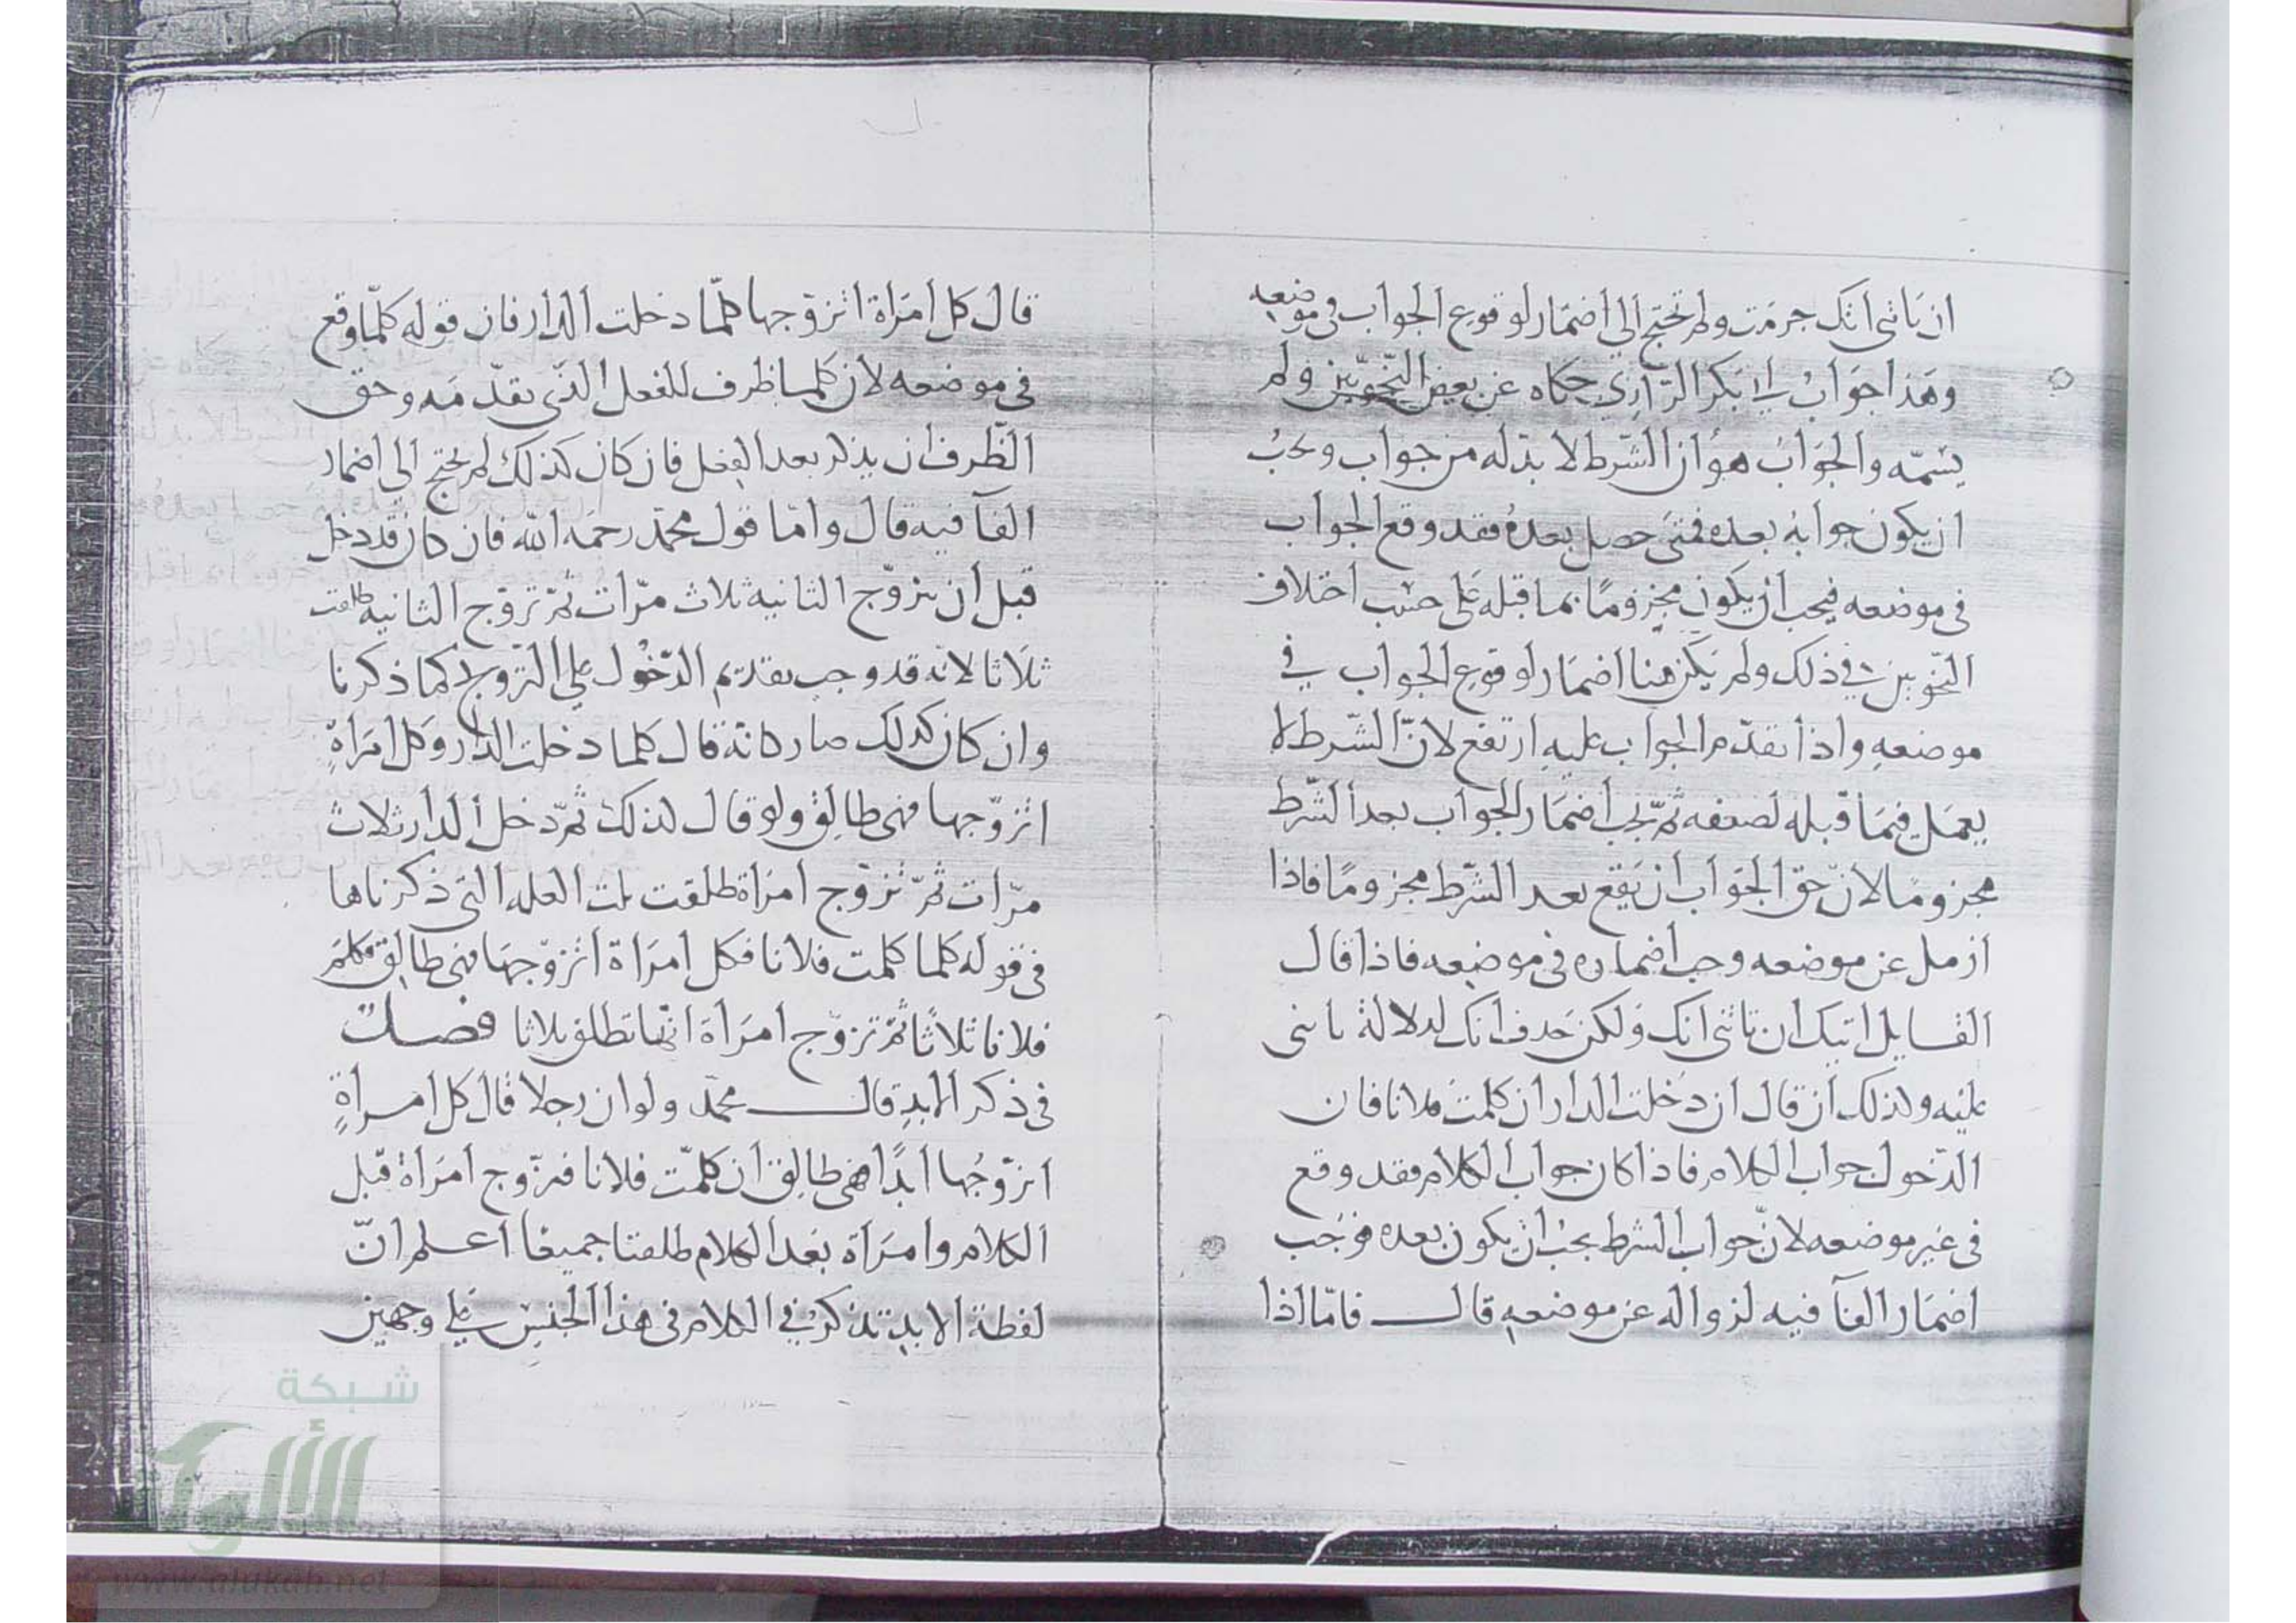 ان تاتنى اتك جزمت ولم تحتج الى اضمار لوقوع الجواب فى موضعه
وهذا جواب لابى بكر الرازى حكاه عن بعض النحويين ولم
يسمه والجواب هو ان الشرط لا بد له من جواب ويجب
ان يكون جوابه بعده فمتى حصل بعده فقد وقع الجواب
فى موضعه فيجب ان يكون مجزوما بما قبله على حسب اختلاف
النحويين فى ذلك ولم يكن هنا اضمار لوقوع الجواب في
موضعه واذا تقدم الجواب عليه ارتفع لان الشرط لا
يعمل فيما قبله لضعفه ثم يجب اضمار الجواب بعد الشرط
مجزوما لان حق الجواب ان يقع بعد الشرط مجزوما فاذا
ازيل عن موضعه وجب اضماره فى موضعه فاذا قال
القايل اتيك ان تاتنى اتك ولكن حذف اتك لدلالة تاتنى
عليه ولذلك ان قال ان دخلت الدار ان كلمت فلانا فان
الدخول جواب الكلام فاذا كان جواب الكلام فقد وقع
فى غير موضعه لان جواب الشرط يجب ان يكون بعده فوجب
اضمار الفآ فيه لزواله عن موضعه قال فاما اذا
قال كل امراة اتزوجها كلما دخلت الدار فان قوله كلما وقع
فى موضعه لان كلما ظرف للفعل الذى تقدمه وحق
الظرف ان يذكر بعد الفعل فان كان كذلك لم يحتج الى اضمار
الفآ فيه قال واما قول محمد رحمه الله فان كان قد دخل
قبل ان يتزوج الثانيه ثلاث مرات ثم تزوج الثانيه طلقت
ثلاثا لانه قد وجب تقديم الدخول على التزوج لما ذكرنا
وان كان كذلك صار كانه قال كلما دخلت الدار وكل امراة
اتزوجها فهى طالق ولو قال لذلك ثم دخل الدار ثلاث
مرات ثم تزوج امراة طلقت ثلث العله التى ذكرناها
فى قوله كلما كلمت فلانا فكل امراة اتزوجها فهى طالق فكلم
فلانا ثلاثا ثم تزوج امراة انها تطلق ثلاثا فصل
فى ذكر الابد قال محمد ولو ان رجلا قال كل امراة
اتزوجها ابدا فهى طالق ان كلمت فلانا فتزوج امراة قبل
الكلام وامراة بعد الكلام طلقتا جميعا اعلم ان
لفظة الابد تذكر في الكلام فى هذا الجنس على وجهين
شبكة
الألوكة
www.alukah.net